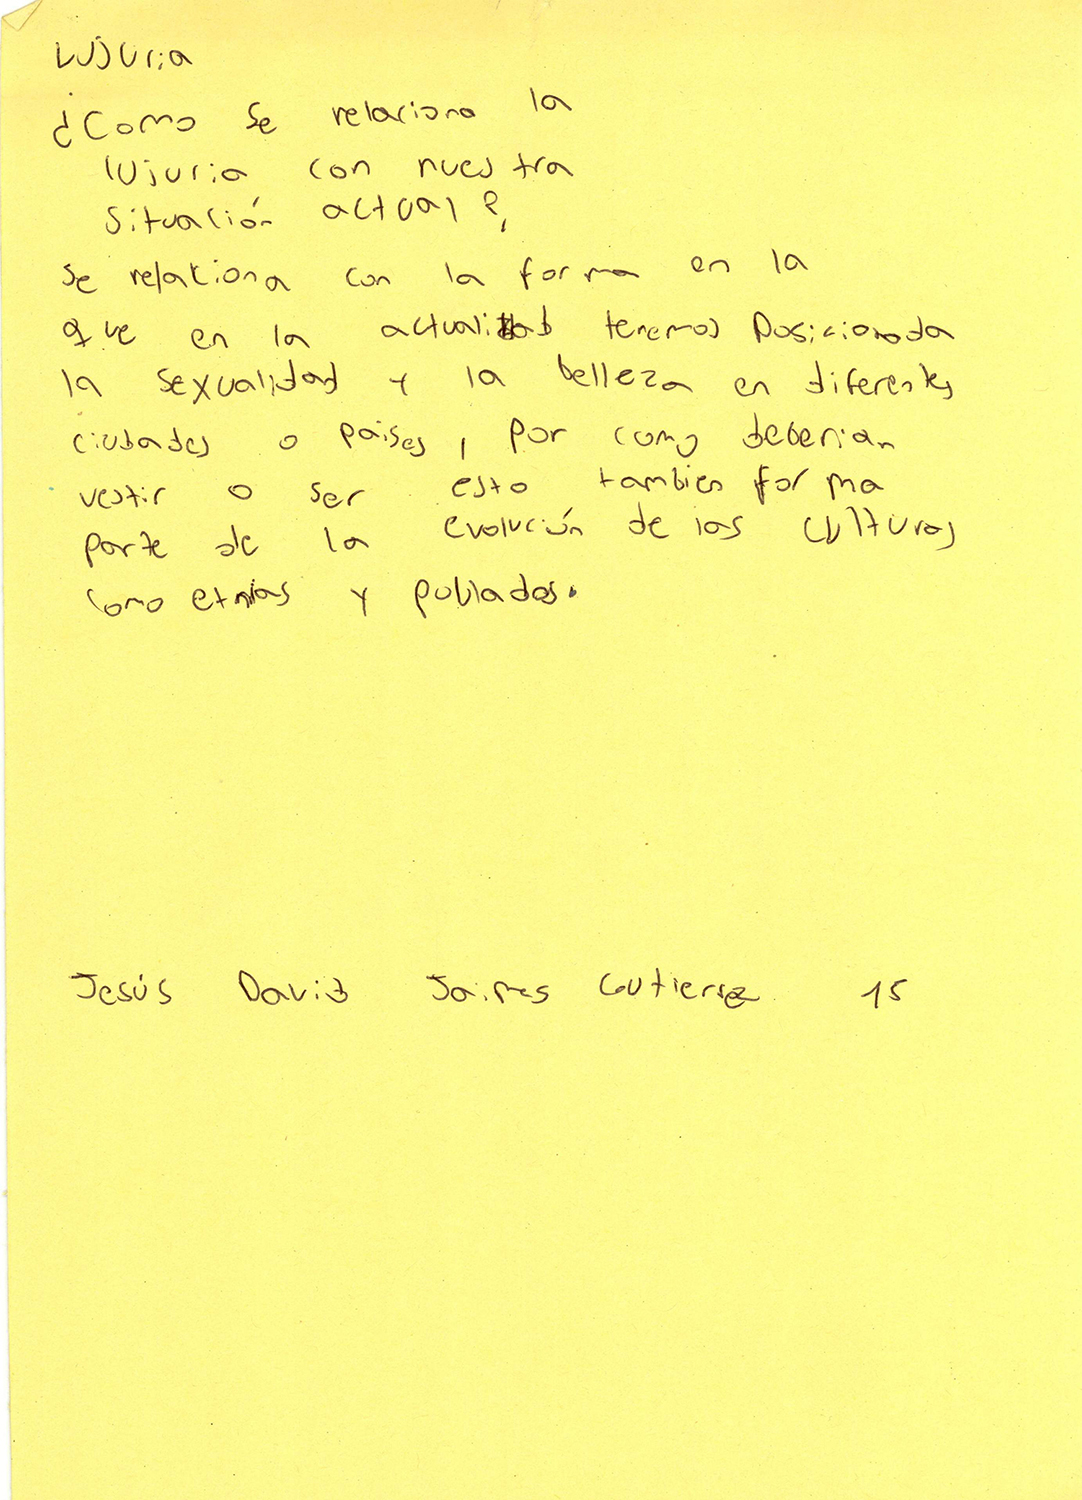 Lujuria
¿Como se relaciona la
lujuria con nuestra
situación actual?
se relaciona con la forma en la
que en la actualidad tenemos posicionada
la sexualidad y la belleza en diferentes
ciudades o paises, por como deberian
vestir o ser esto tambien forma
parte de la evolución de las culturas
como etnias y poblados.
Jesús David Jaimes Gutierrez 15